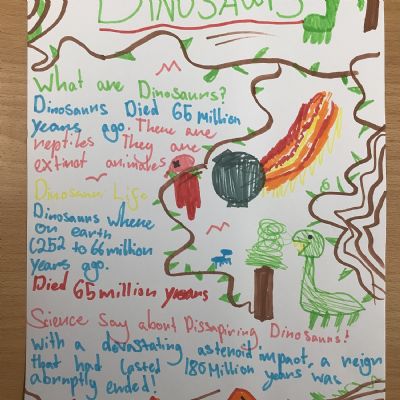 DINOSAURS
What are Dinosaurs?
Dinosaurs Died 65 Million
years ago. There are
reptiles They are
extinct animales
Dinosaurs Life
Dinosaurs where
on earth
(252 to 66 million
years ago.
Died 65 million years
Science say about Dissapiring Dinosaurs!
with a devastating asteroid impact, a reign
that had lasted 180 Million years was
abruptly ended!